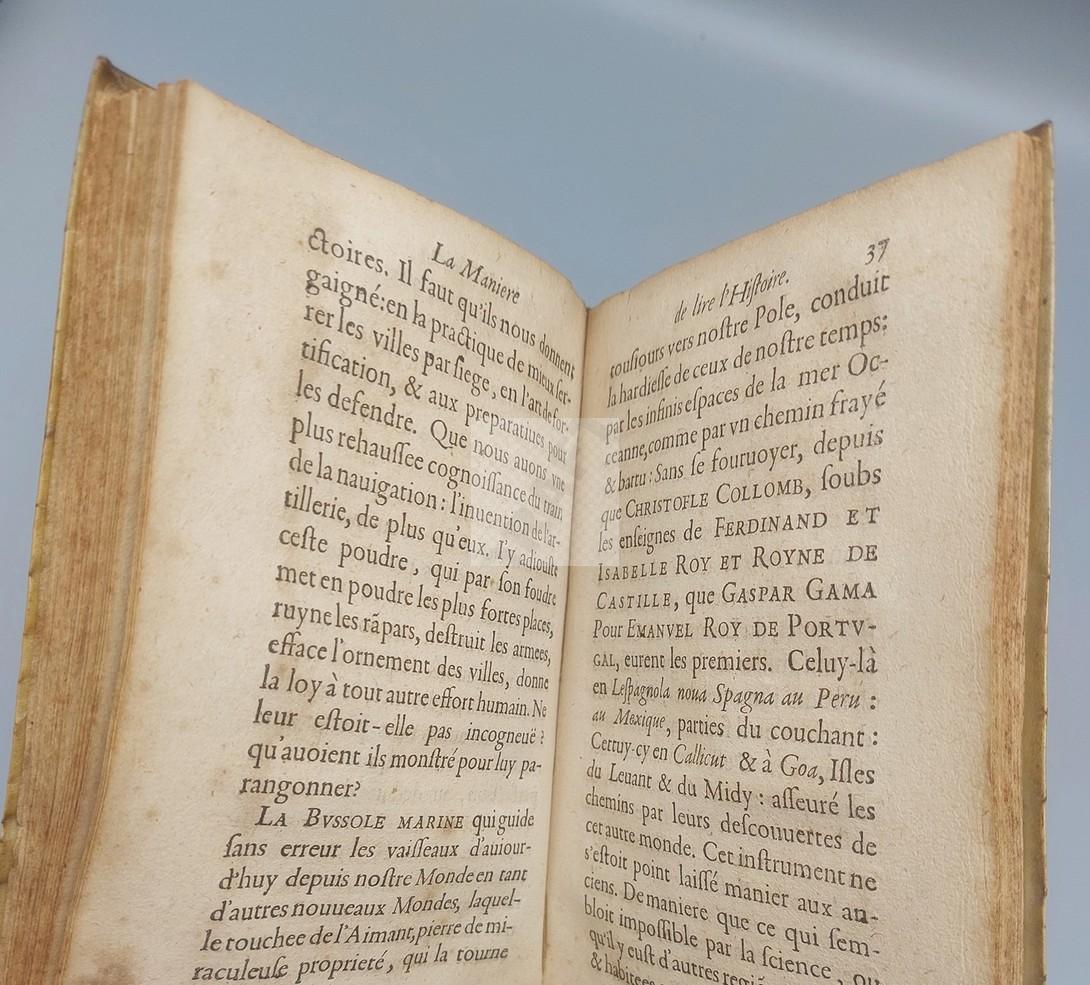 La Maniere
ctoires. Il faut qu'ils nous donnent
gaigné: en la practique de mieux ser-
rer les villes par siege, en l'art de for-
tification, & aux preparatiues pour
les defendre. Que nous auons vne
plus rehaussee cognoissance du train
de la nauigation : l'inuention de l'ar-
tillerie, de plus qu'eux. I'y adiouste
ceste poudre, qui par son foudre
met en poudre les plus fortes places,
ruyne les rãpars, destruit les armees,
efface l'ornement des villes, donne
la loy à tout autre effort humain. Ne
leur estoit-elle pas incogneuë ?
qu'auoient ils monstré pour luy pa-
rangonner?
LA BVSSOLE MARINE qui guide
sans erreur les vaisseaux d'auiour-
d'huy depuis nostre Monde en tant
d'autres nouueaux Mondes, laquel-
le touchee de l'Aimant, pierre de mi-
raculeuse proprieté, qui la tourne
de lire l'Histoire. 37
tousiours vers nostre Pole, conduit
la hardiesse de ceux de nostre temps:
par les infinis espaces de la mer Oc-
ceanne, comme par vn chemin frayé
& battu : Sans se fouruoyer, depuis
que CHRISTOFLE COLLOMB, soubs
les enseignes de FERDINAND ET
ISABELLE ROY ET ROYNE DE
CASTILLE, que GASPAR GAMA
Pour EMANVEL ROY DE PORTV-
GAL, eurent les premiers. Celuy-là
en Lespagnola noua Spagna au Peru :
au Mexique, parties du couchant :
Cettuy-cy en Callicut & à Goa, Isles
du Leuant & du Midy : asseuré les
chemins par leurs descouuertes de
cet autre monde. Cet instrument ne
s'estoit point laissé manier aux an-
ciens. De maniere que ce qui sem-
bloit impossible par la science, ou
qu'il y eust d'autres
& habitees